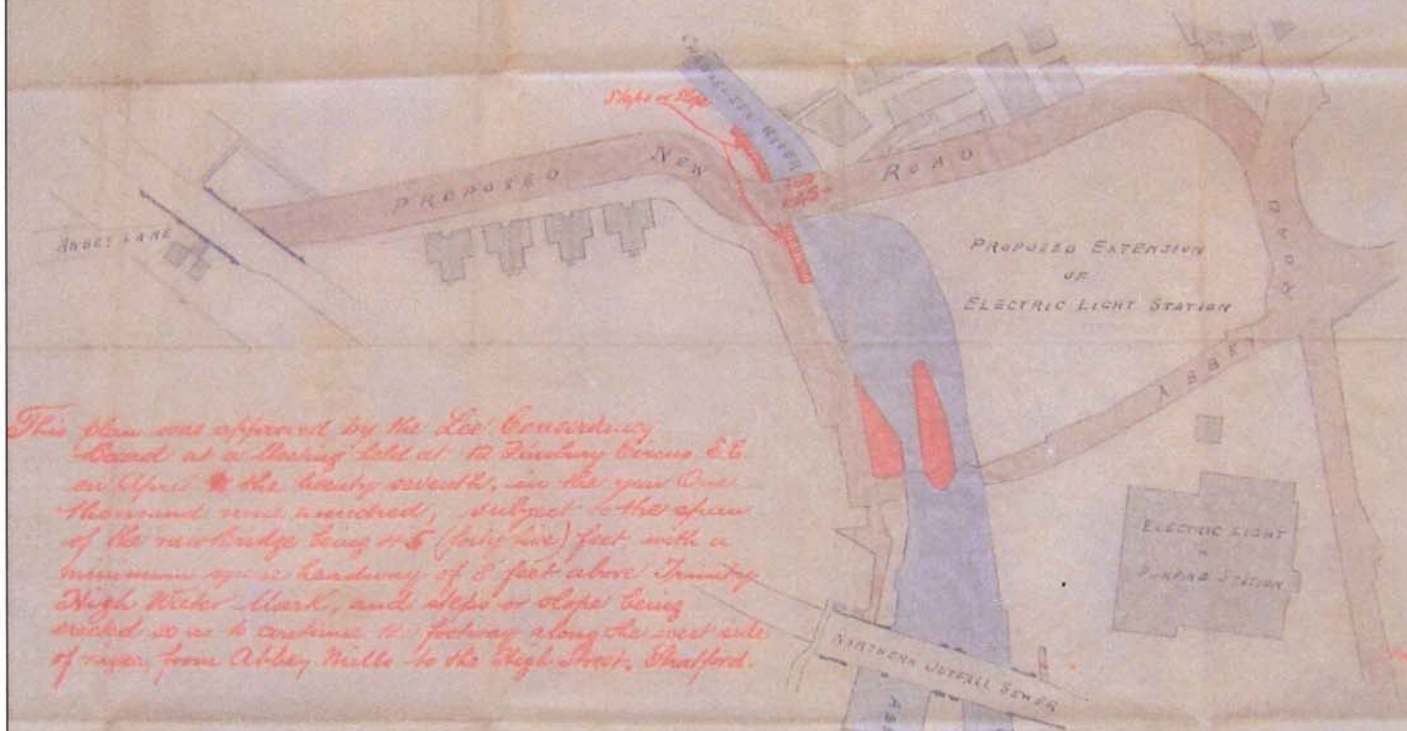 CHANNELSEA RIVER
Steps or Slope
PROPOSED NEW ROAD
ABBEY LANE
PROPOSED EXTENSION
OF
ELECTRIC LIGHT STATION
ROAD
ABBEY
This plan was approved by the Lee Conservancy
Board at a Meeting held at 12 Finsbury Circus E.C.
on April the twenty seventh, in the year One
thousand nine hundred, subject to the span
of the new bridge being 45 (forty five) feet, with a
minimum headway of 8 feet above Trinity
High Water Mark, and steps or slope being
erected so as to continue the footway along the west side
of river, from Abbey Mills to the High Street, Stratford.
ELECTRIC LIGHT
PUMPING STATION
NORTHERN OUTFALL SEWER